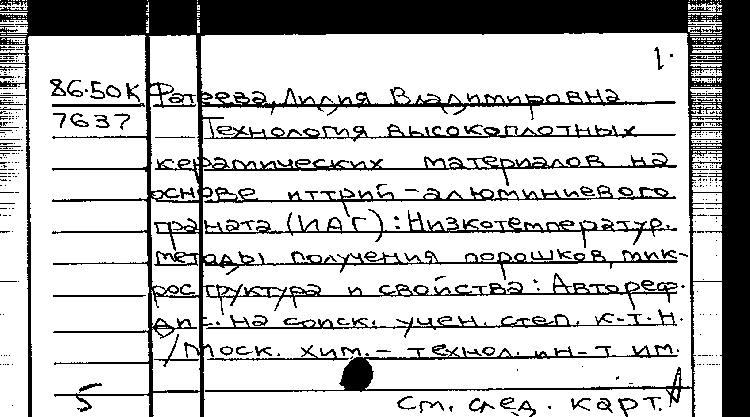 1.
86.50К Фатеева, Лилия Владимировна
7637 Технология высокоплотных
керамических материалов на
основе иттрий-алюминиевого
граната (ИАГ): Низкотемператур.
методы получения порошков, мик-
роструктура и свойства: Автореф.
дис. на соиск. учен. степ. к.т.н.
/Моск. хим.-технол. ин-т им.
5 см. след. карт.